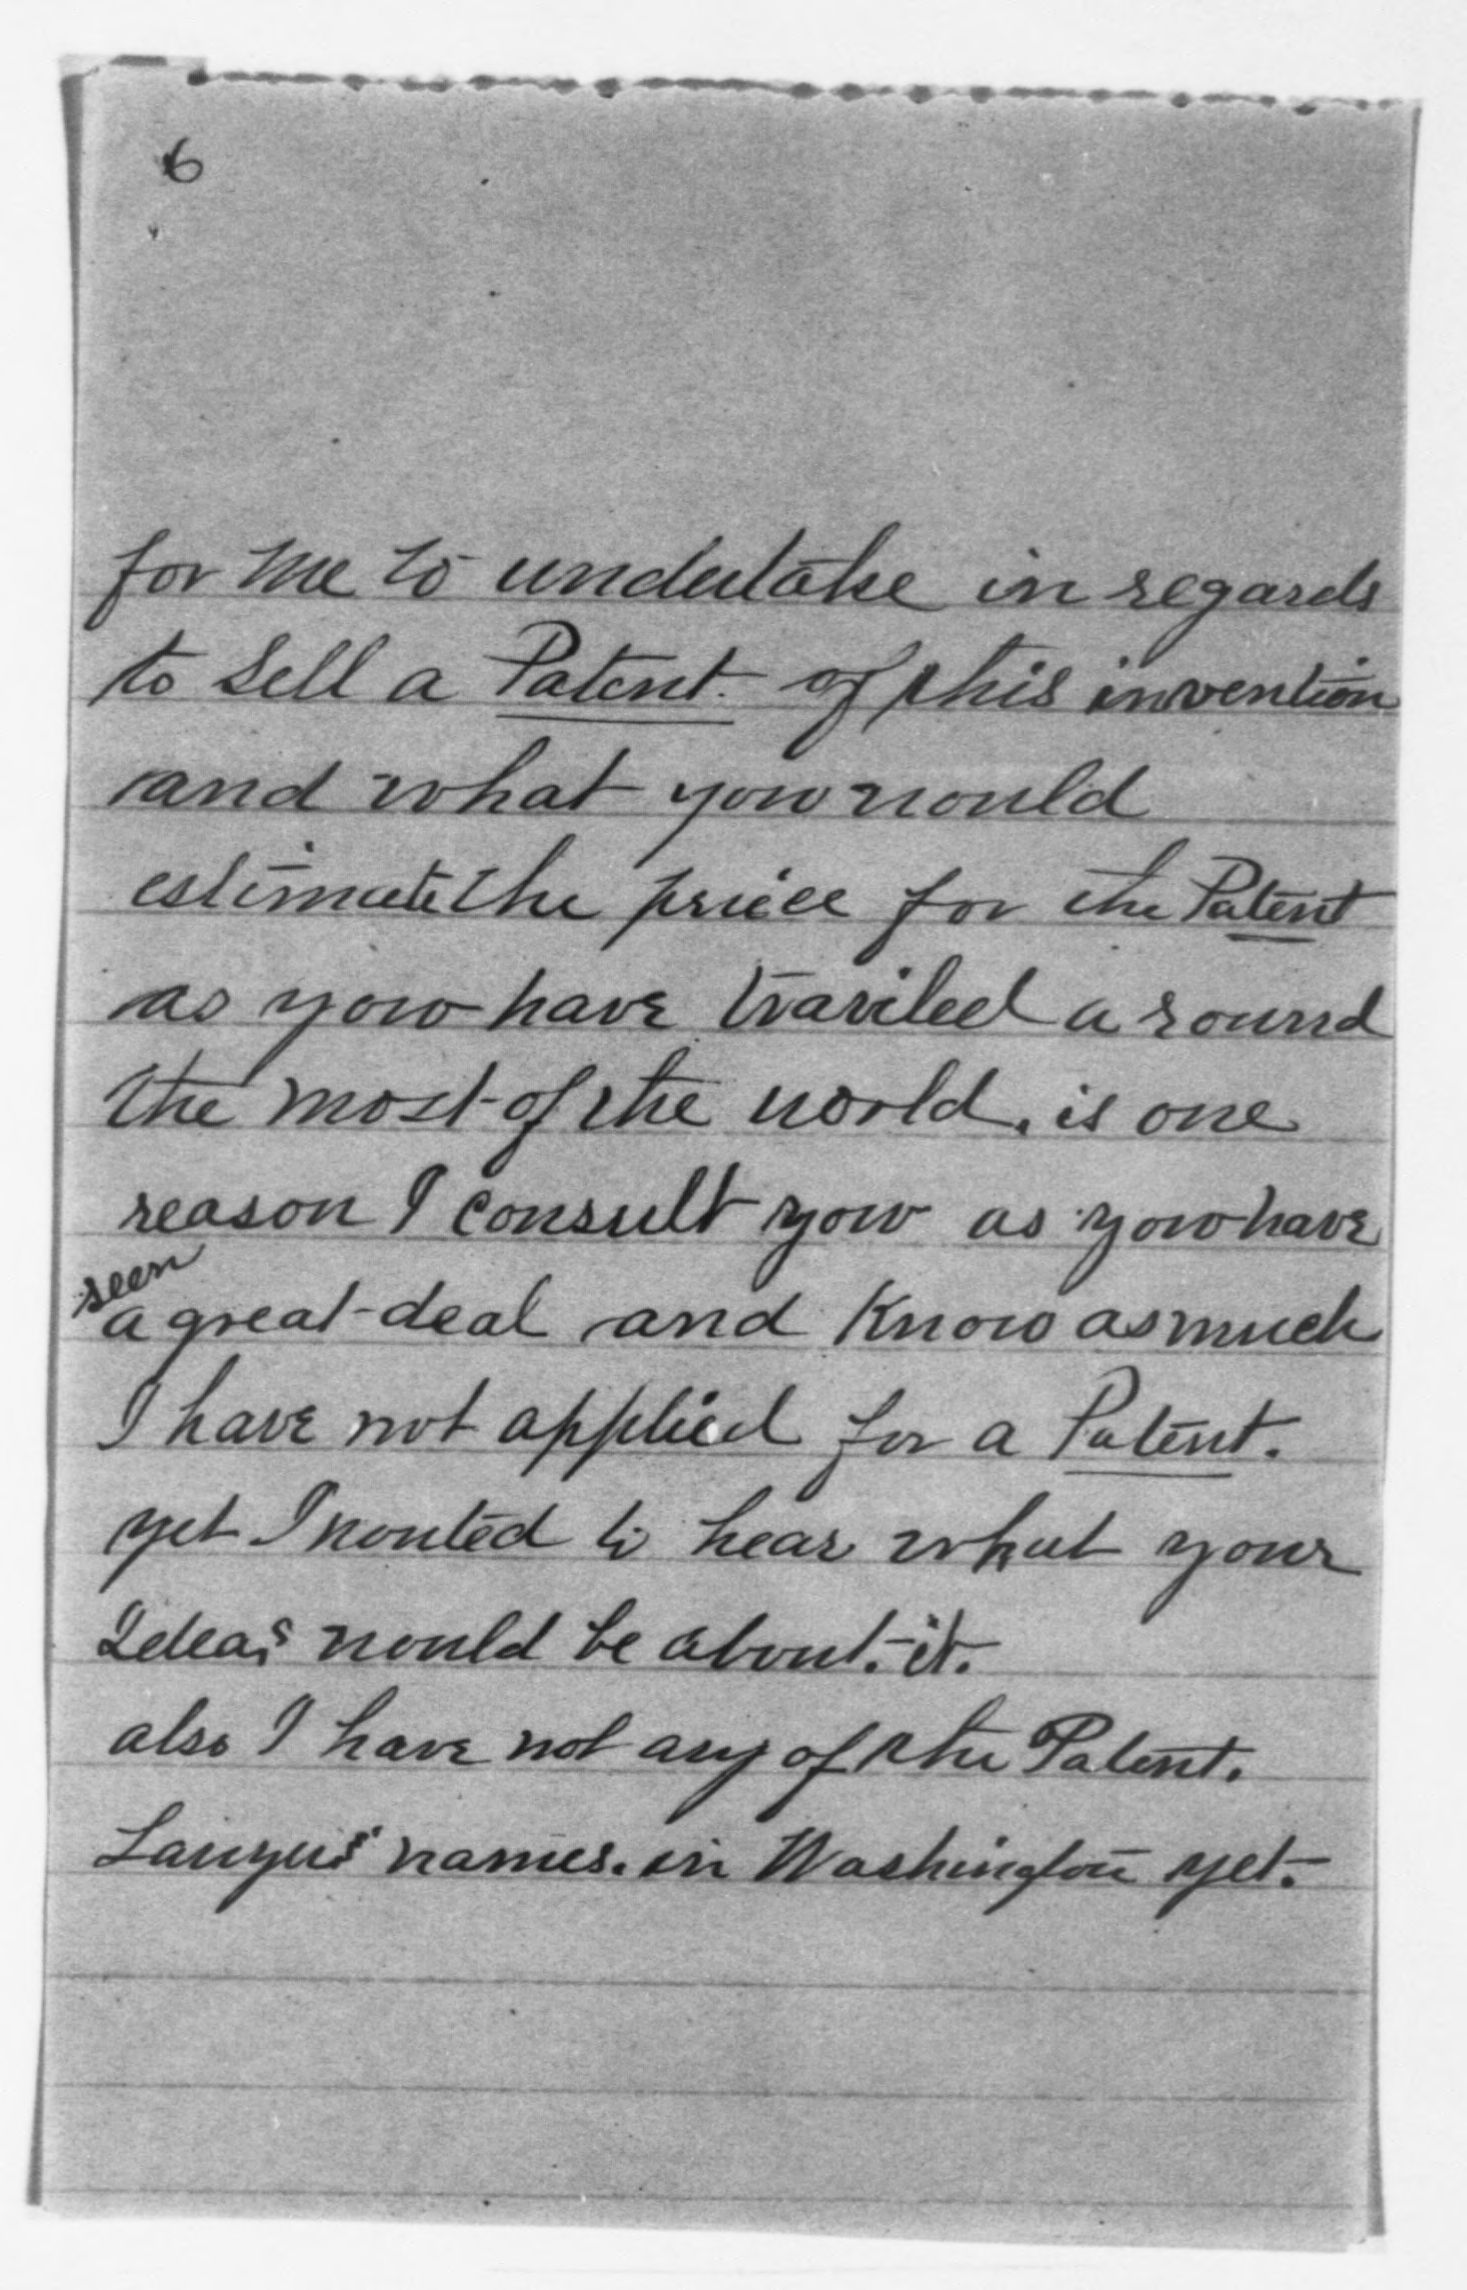 6
for me to undertake in regards
to Sell a Patent. of this invention
and what you would
estimate the price for the Patent
as you have traviled a round
the most of the world. is one
reason I consult you as you have
seen
a great deal and Know as much
I have not applied for a Patent.
yet I wonted to hear what your
Ideas would be about. it.
also I have not any of the Patent.
Lawyers names. in Washington yet.